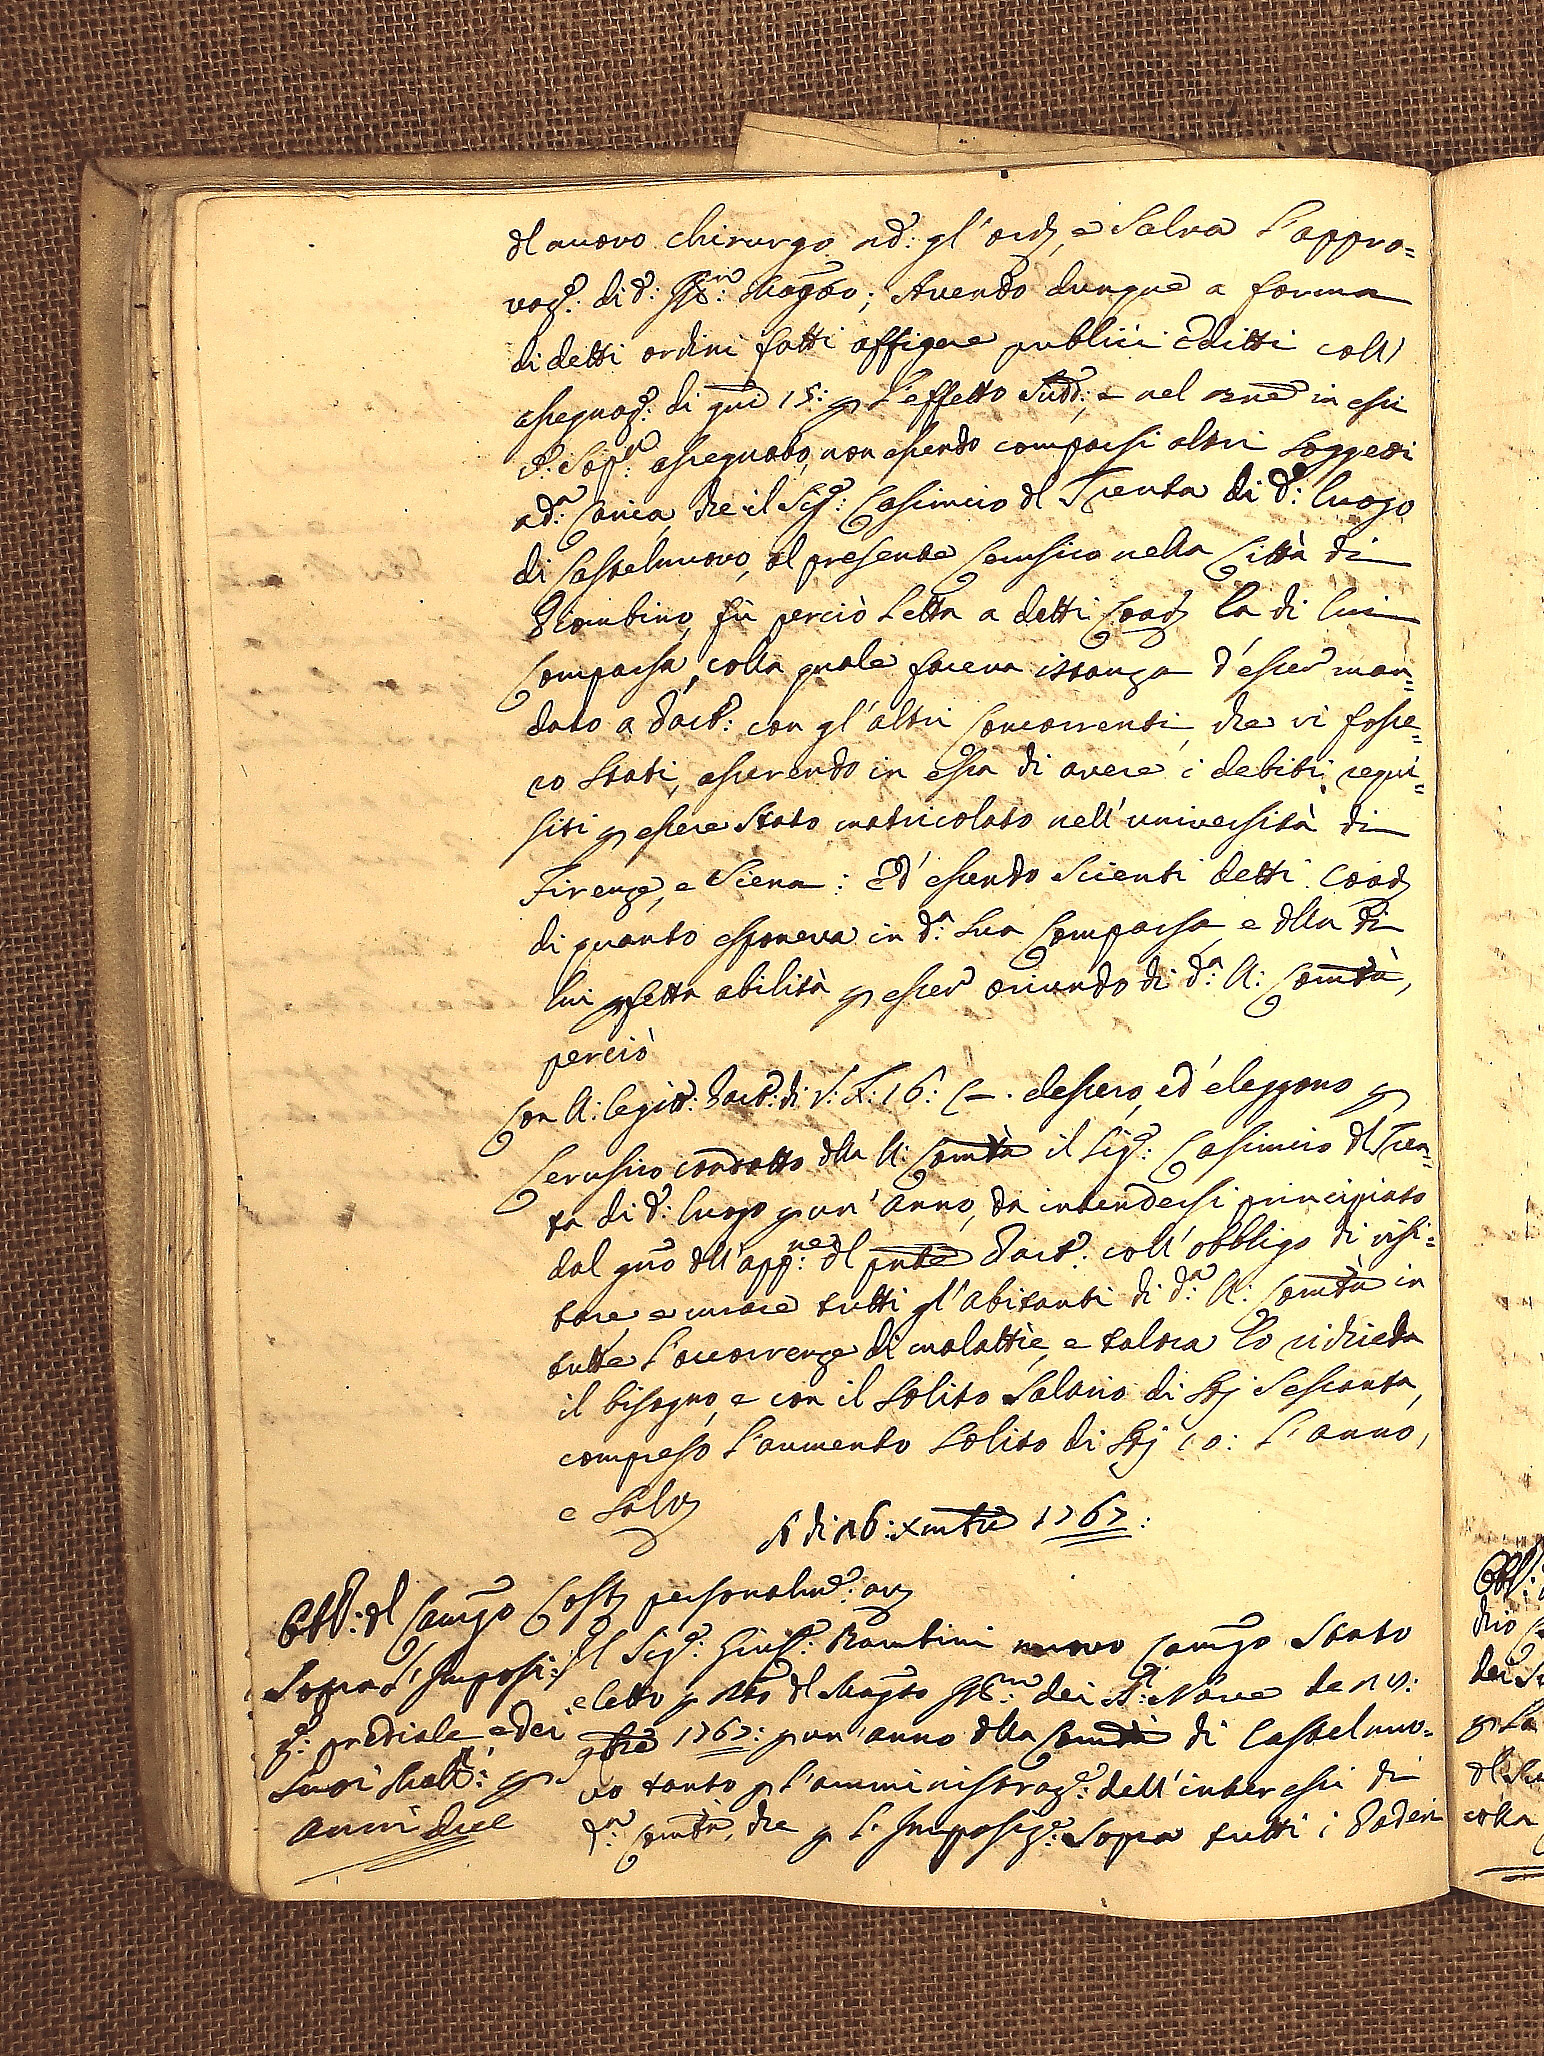 dl nuovo chirurgo nd: gl'ordj, e salva l'appro=
vaze: di d: Magto; Avendo dunque a forma
di detti ordini fatti affigere publici editti coll'
assegnaze: di gni 15: p l'effetto sudd:, e nel trne in essi
assegnato, non essendo comparsi altri soggetti
a da: Carica, che il Sige: Casimiro dl Trenta di do: luogo
di Castelnuovo, al presente Cerusico nella Città di
Piombino, fù perciò letta a detti Coadj la di lui
Comparsa, colla quale faceva istanza d'esser man=
dato a Parto: con gl'altri Concorrenti, che vi fosse=
ro stati, asserendo in essa di avere i debiti requi=
siti p essere stato matricolato nell'università di
Firenze, e Siena: Ed essendo scienti detti Coadj
di quanto esponeva in da: sua Comparsa, e dlla di
lui pfetta abilità p esser oriundo di da: A: Comtà,
perciò
Con A: legito: Parto: di V: F: 16: C—. dessero, ed eleggono p
Cerusico condotto dlla A: Comtà il Sige: Casimiro dl Tren=
ta di do: luogo p un'anno, da intendersi principiato
dal gno dll'appne: dl pnte Parto: coll'obbligo di visi=
tare e curare tutti gl'abitanti di da: A: Comtà in
tutte l'occorrenze di malattie, e talora lo richieda
il bisogno, e con il solito salario di sessanta,
compreso l'aumento solito di 10: l'anno,
e salvj
A di 16: Xmbre 1767:
Obbl: dl Camgo
sopra l'Imposi:
ze: prediale e dei
suoi Mall: p
anni due
Costj personalme: avj
Il Sige: Giuse: Bambini nuovo Camgo stato
eletto p dl Magto dei Sri: Nove de 19:
9bre 1767: p un'anno dlla Comtà di Castelnuo=
vo tanto p l'amministraze: dell'interessi di
da: Comtà, che p l'Imposize: sopra tutti i Poderi